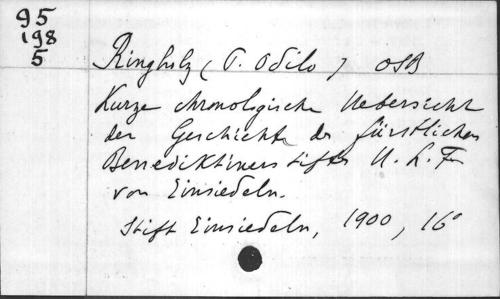 95
198
5
Ringholz (P. Odilo) OSB
Kurze chronologische Uebersicht
der Geschichte des fürstlichen
Benediktinerstiftes U. L. Fr.
von Einsiedeln.
Stift Einsiedeln, 1900, 16°